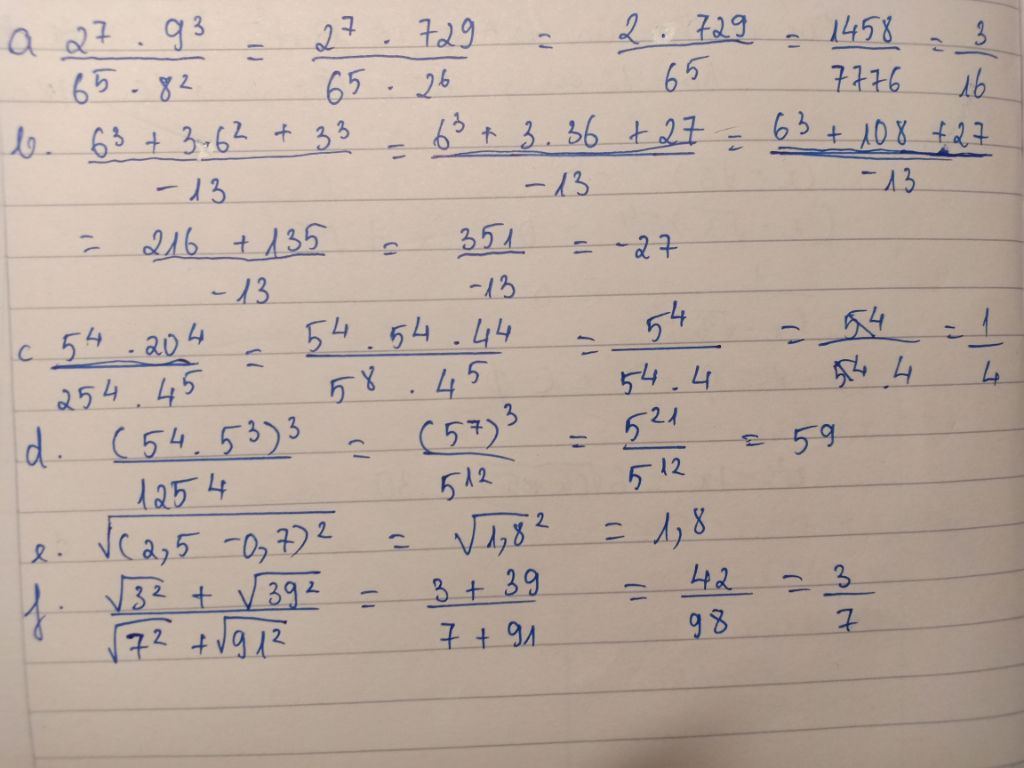 a (2⁷ · 9³)/(6⁵ · 8²) = (2⁷ · 729)/(6⁵ · 2⁶) = (2 · 729)/6⁵ = 1458/7776 = 3/16
b. (6³ + 3·6² + 3³)/(-13) = (6³ + 3·36 + 27)/(-13) = (6³ + 108 + 27)/(-13)
= (216 + 135)/(-13) = 351/(-13) = -27
c (5⁴ · 20⁴)/(25⁴ · 4⁵) = (5⁴ · 5⁴ · 4⁴)/(5⁸ · 4⁵) = 5⁴/(5⁴ · 4) = 5⁴/(5⁴ · 4) = 1/4
d. (5⁴ · 5³)³/125⁴ = (5⁷)³/5¹² = 5²¹/5¹² = 5⁹
e. √(2,5 - 0,7)² = √1,8² = 1,8
f. (√3² + √39²)/(√7² + √91²) = (3 + 39)/(7 + 91) = 42/98 = 3/7